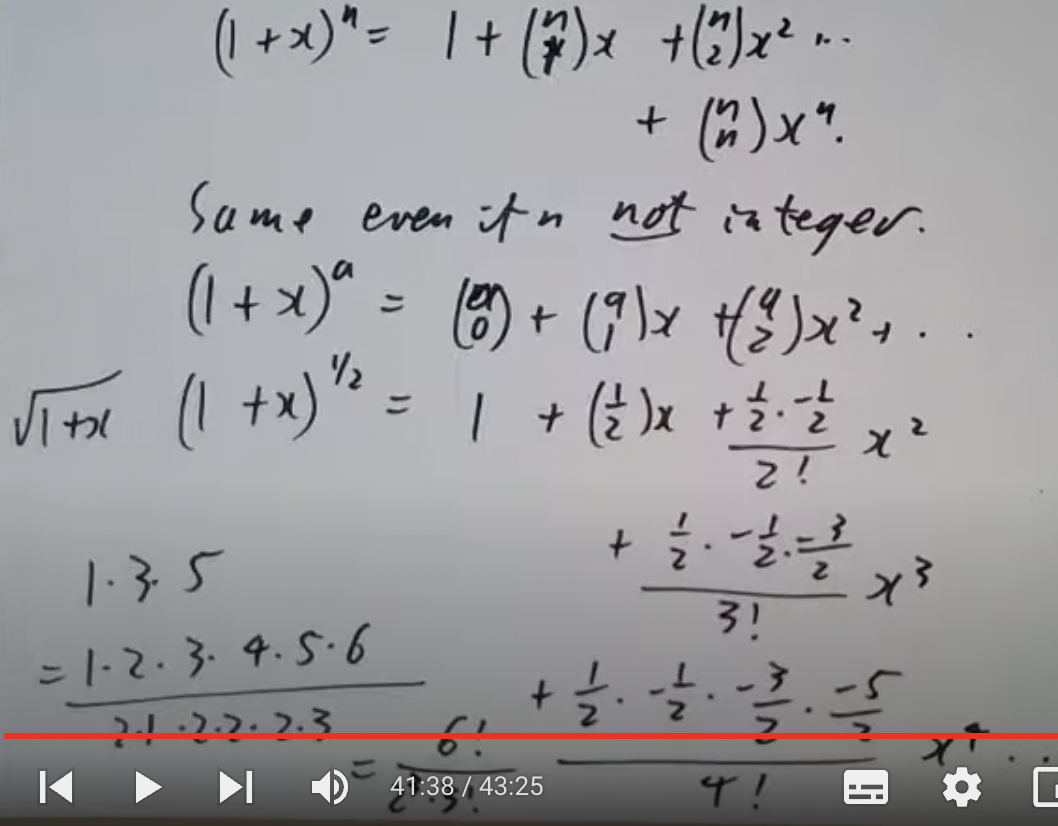 (1+x)^n = 1 + (n 1)x + (n 2)x² ...
+ (n n)x^n.
Same even if n not integer.
(1+x)^a = (a 0) + (a 1)x + (a 2)x² + . .
√1+x (1+x)^1/2 = 1 + (1/2)x + 1/2 · -1/2 / 2! x²
+ 1/2 · -1/2 · -3/2 / 3! x³
1·3·5
= 1·2·3·4·5·6 / 2·1·2·2·2·3
+ 1/2 · -1/2 · -3/2 · -5/2 / 4! x⁴ . .
= 6! / 2³·3!
41:38 / 43:25